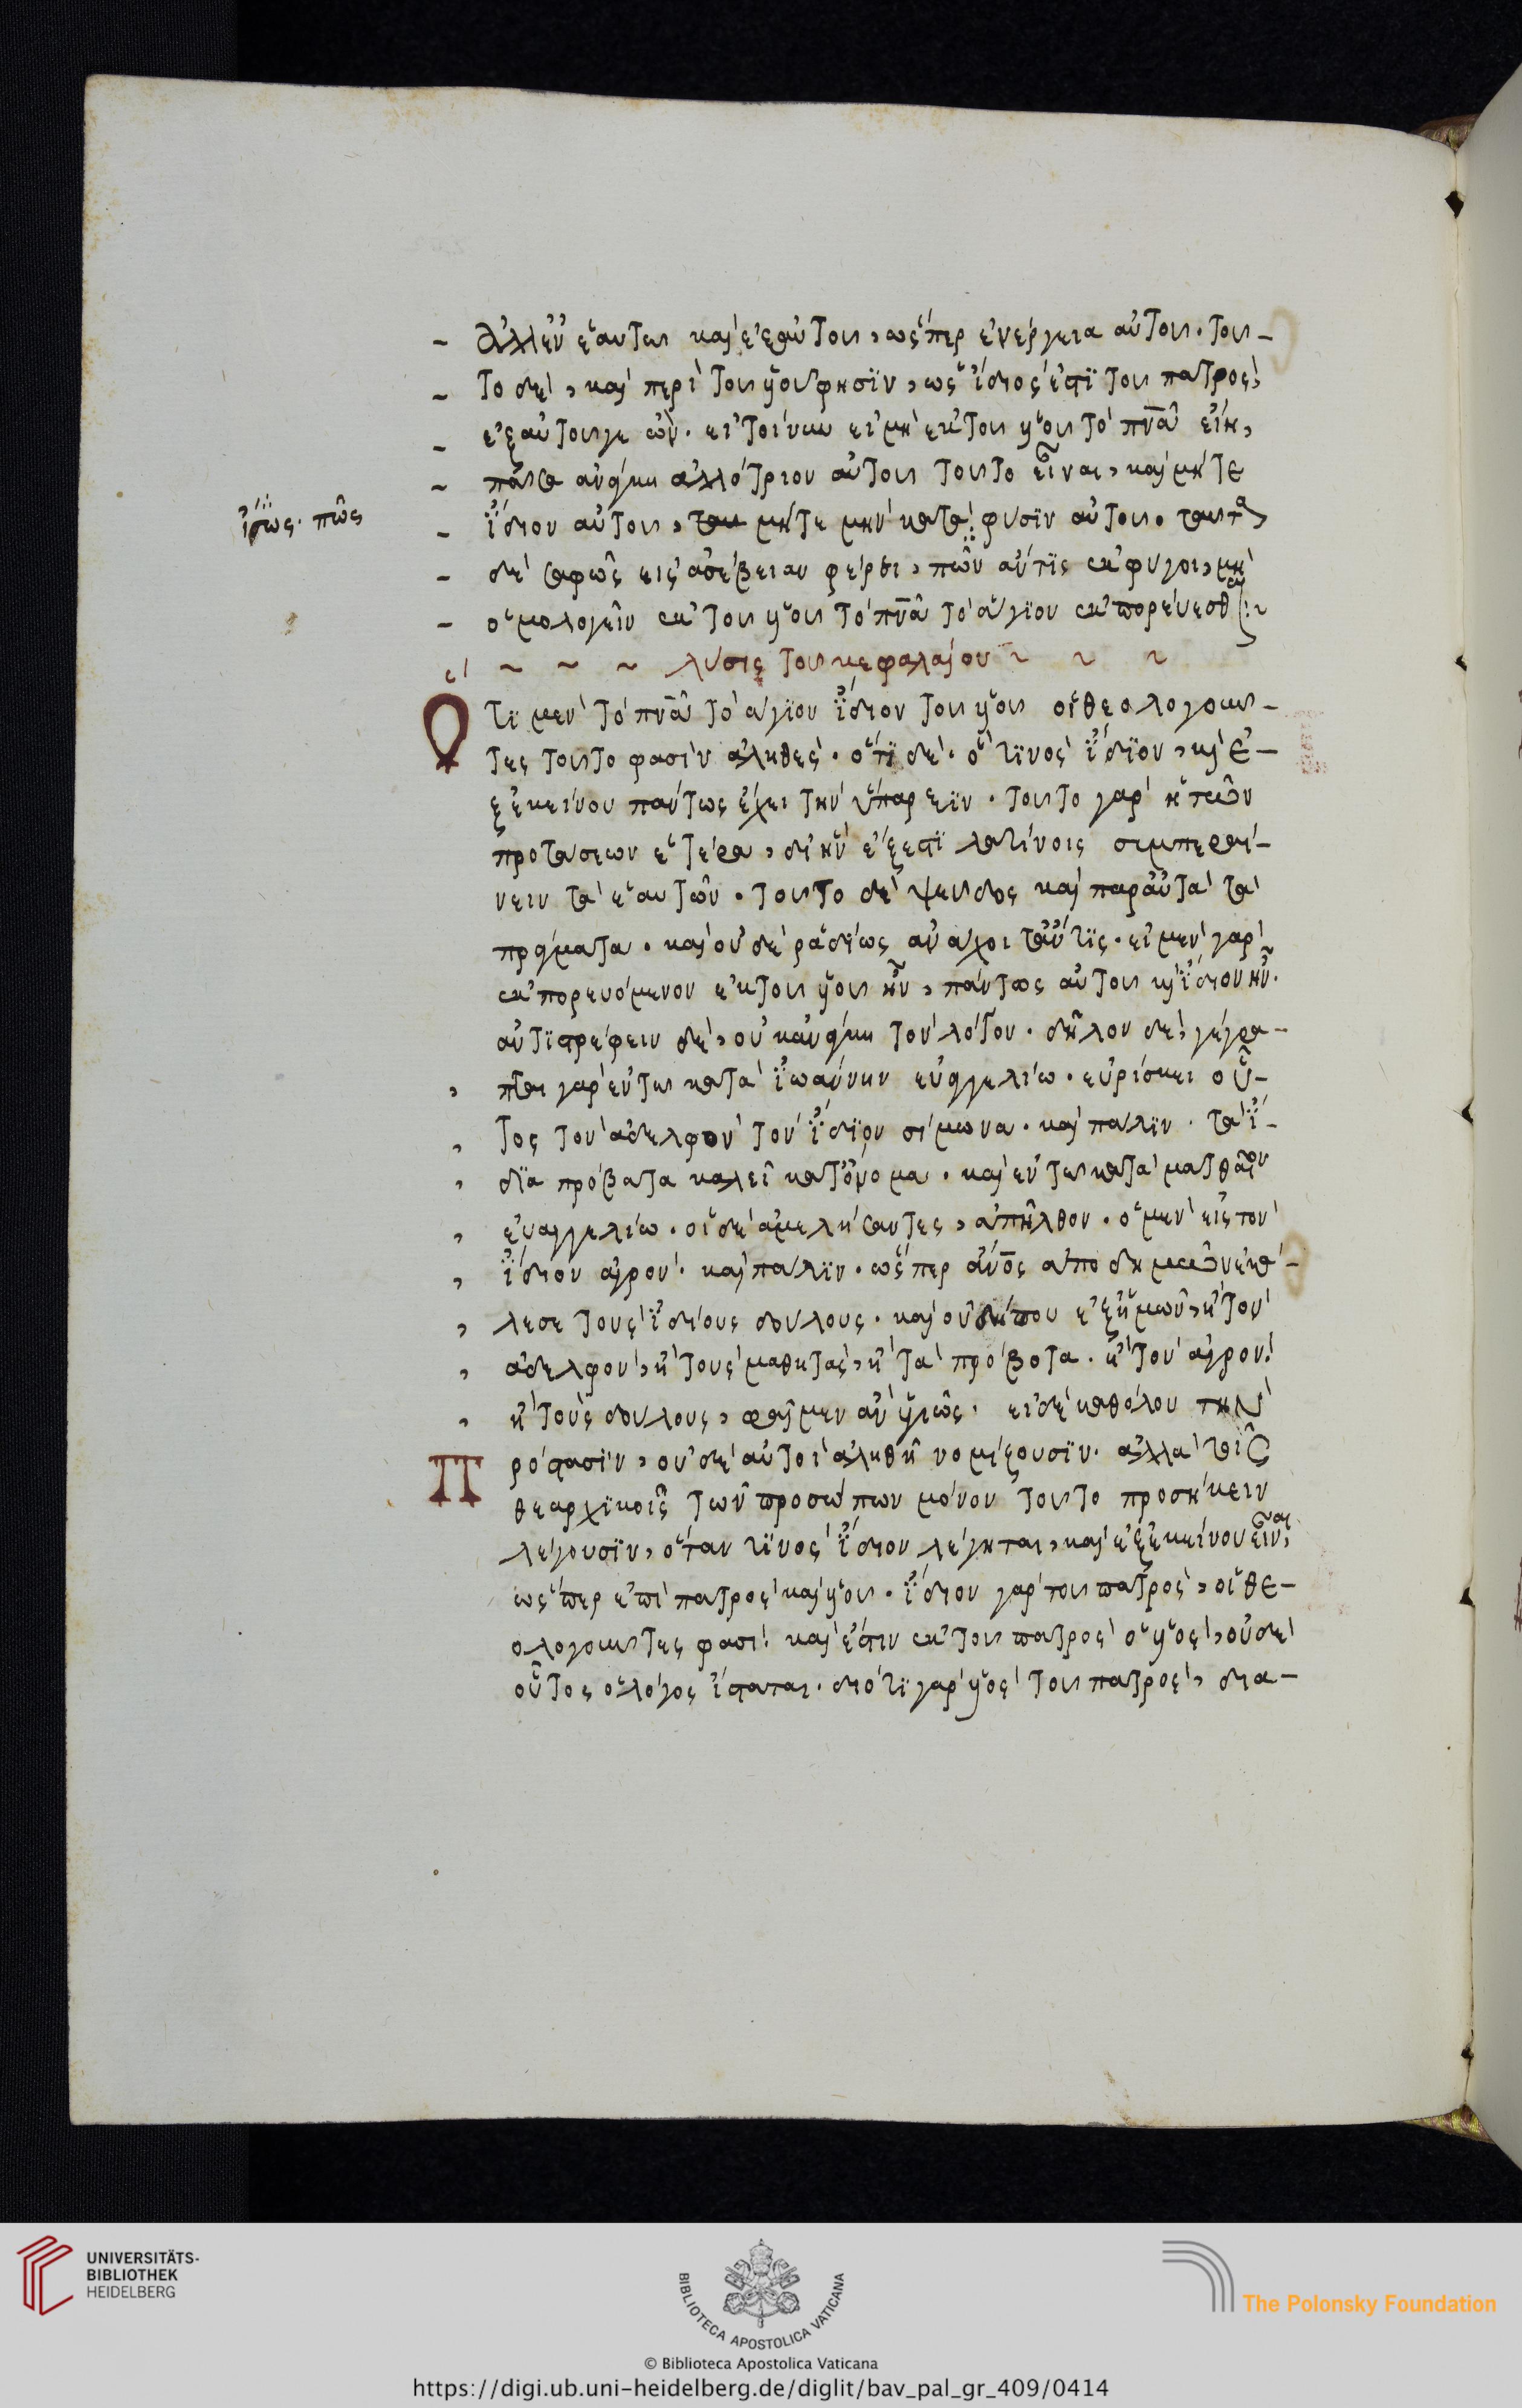 ἀλλ' ἐν ἑαυτῷ καὶ ἐξ ἑαυτοῦ, ὥσπερ ἐνέργεια αὐτοῦ. τοῦ-
το δὲ, καὶ περὶ τοῦ υἱοῦ φησὶν, ὡς ἴδιος ἐστὶ τοῦ πατρὸς,
ἐξ αὐτοῦ γε ὤν. εἰ τοίνυν εἰ μὴ ἐκ τοῦ υἱοῦ τὸ πνᾶ εἴη,
πᾶσα ἀνάγκη ἀλλότριον αὐτοῦ τοῦτο εἶναι, καὶ μήτε
ἴδιον αὐτοῦ, μήτε μὴν κατὰ φύσιν αὐτοῦ. ταῦτα
ἴσως. πῶς
δὲ σαφῶς εἰς ἀσέβειαν φέρει, πῶν ἄν τις ἐκφύγοι, μὴ
ὁμολογεῖν ἐκ τοῦ υἱοῦ τὸ πνᾶ τὸ ἅγιον ἐκπορεύεσθαι:~
~ ~ ~ λύσις τοῦ κεφαλαίου ~ ~ ~
Ὅτι μὲν τὸ πνᾶ τὸ ἅγιον ἴδιον τοῦ υἱοῦ οἱ θεολογοῦν-
τες τοῦτο φασὶν ἀληθές. ὅτι δὲ. ὅ τινος ἴδιον, κὶ ἐ-
ξ ἐκείνου πάντως ἔχει τὴν ὕπαρξιν. τοῦτο γὰρ ἡ τῶν
προτάσεων ἑτέρα, δι' ἣν ἔξεστι λατίνοις συμπεραί-
νειν τὰ ἑαυτῶν. τοῦτο δὲ ψεῦδος καὶ παρ' αὐτὰ τὰ
πράγματα. καὶ οὐδὲ ῥαδίως ἀνάσχοι τ' ἄν τις. εἰ μὲν γὰρ
ἐκπορευόμενον ἐκ τοῦ υἱοῦ ἦν, πάντως αὐτοῦ κὶ ἴδιον ἦν.
ἀντιστρέφειν δὲ, οὐκ ἀνάγκη τὸν λόγον. δῆλον δὲ, γέγρα-
πται γὰρ ἐν τῷ κατὰ ἰωάννην εὐαγγελίω. εὑρίσκει οὗ-
τος τὸν ἀδελφὸν τὸν ἴδιον σίμωνα. καὶ πάλιν. τὰ ἴ-
δια πρόβατα καλεῖ κατ' ὄνομα. καὶ ἐν τῷ κατὰ ματθαῖον
εὐαγγελίω. οἱ δὲ ἀμελήσαντες, ἀπῆλθον. ὁ μὲν εἰς τὸν
ἴδιον ἀγρόν. καὶ πάλιν. ὥσπερ ἄνος ἀποδημῶν ἐκά-
λεσε τοὺς ἰδίους δούλους. καὶ οὐ δήπου ἐξ ἡμῶν, ἢ τὸν
ἀδελφὸν, ἢ τοὺς μαθητὰς, ἢ τὰ πρόβατα. ἢ τὸν ἀγρὸν.
ἢ τοὺς δούλους, φαῖμεν ἂν ὑγιῶς. εἰ δὲ καθόλου τὴν
Πρότασιν, οὐδὲ αὐτοὶ ἀληθῆ νομίζουσιν. ἀλλὰ ταῖς
θεαρχικοῖς τῶν προσώπων μόνον τοῦτο προσήκειν
λέγουσιν, ὅταν τινὸς ἴδιον λέγηται, καὶ ἐξ ἐκείνου εἶναι,
ὥσπερ ἐπὶ πατρὸς καὶ υἱοῦ. ἴδιον γὰρ τοῦ πατρὸς, οἱ θε-
ολογοῦντες φασὶ. καὶ ἔστιν ἐκ τοῦ πατρὸς ὁ υἱὸς, οὐδὲ
οὗτος ὁ λόγος ἵσταται. διότι γὰρ υἱὸς τοῦ πατρὸς, δια-
UNIVERSITÄTS-
BIBLIOTHEK
HEIDELBERG
BIBLIOTECA APOSTOLICA VATICANA
The Polonsky Foundation
© Biblioteca Apostolica Vaticana
https://digi.ub.uni-heidelberg.de/diglit/bav_pal_gr_409/0414